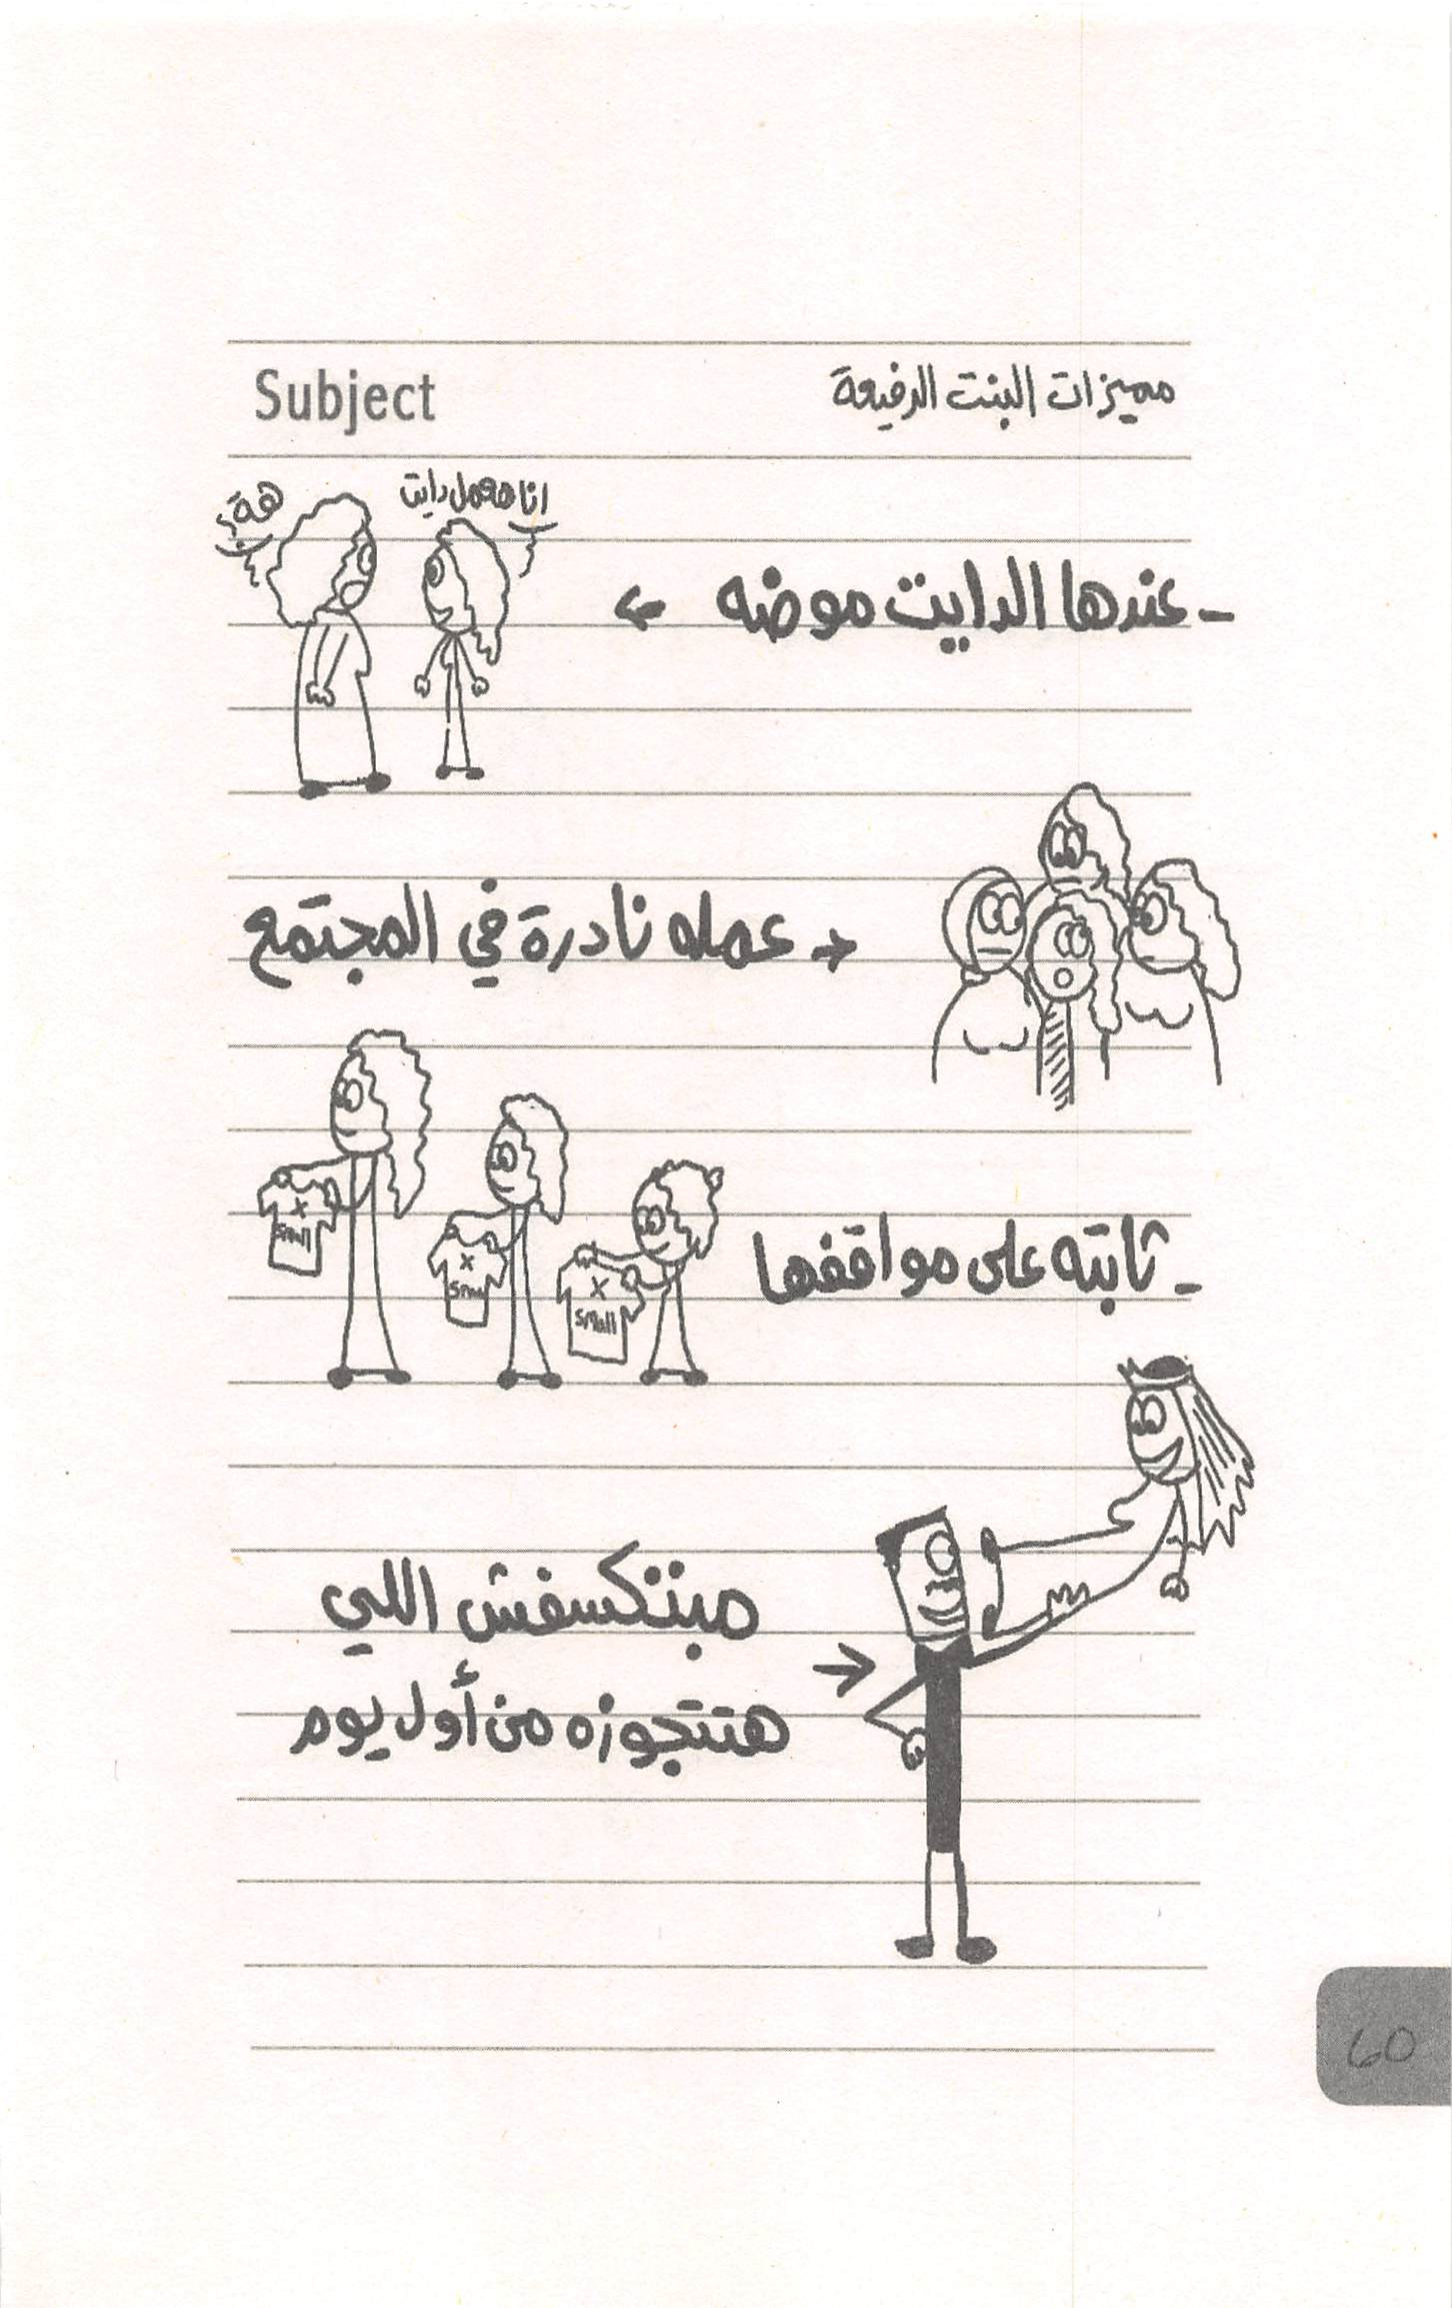 Subject
مميزات البنت الرفيعة
انا هعمل دايت
هة؟
- عندها الدايت موضه ←
→ عمله نادرة في المجتمع
- ثابته على مواقفها
X Small
X Small
X Small
مبتتكسفش اللي
→
هتتجوزه من أول يوم
60